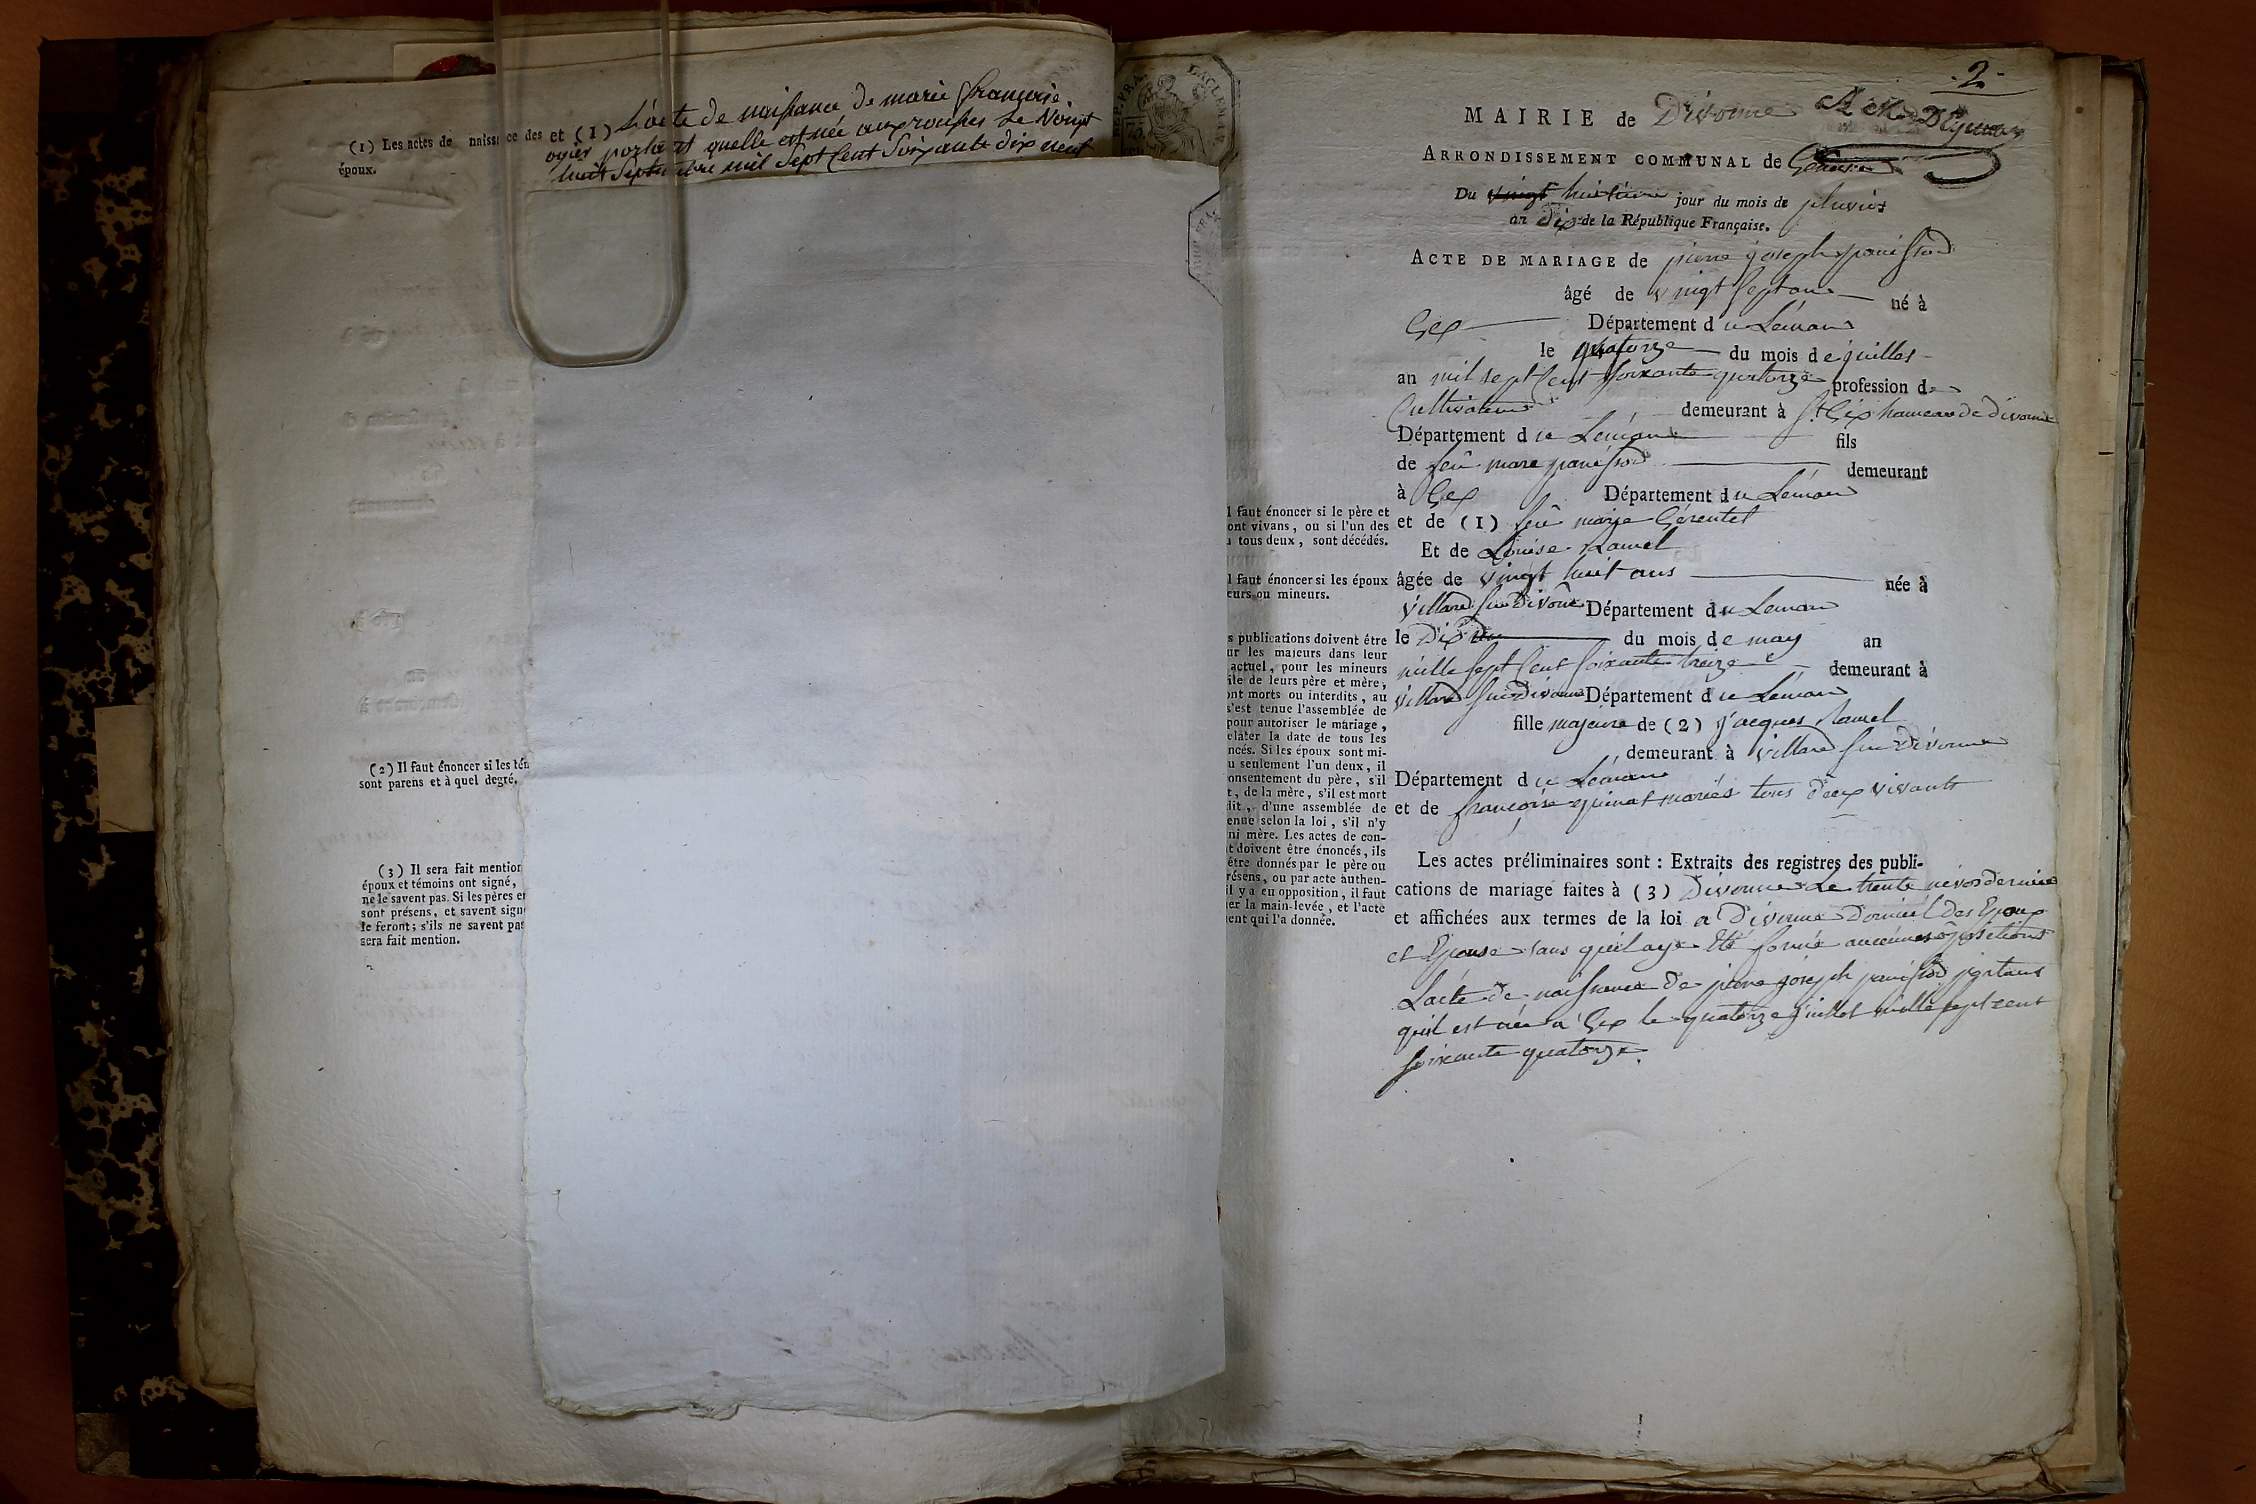 (1) Les actes de naissance des
époux.
et (1) L'acte de naissance de marie françoise
ogier portant quelle est née auxrousses Le Vingt
huit Septembre mil Sept Cent Soixante dix neuf
(2) Il faut énoncer si les tém
sont parens et à quel degré.
(3) Il sera fait mention
époux et témoins ont signé,
ne le savent pas. Si les pères et
sont présens, et savent sign
le feront; s'ils ne savent pas
sera fait mention.
2
MAIRIE de Divonne
ARRONDISSEMENT COMMUNAL de Genève
Du vingt huitième jour du mois de pluviose
an Dix de la République Française.
ACTE DE MARIAGE de pierre joseph panissod
âgé de vingt Sept ans né à
Gex Département du Léman
le quatorze du mois de juillet
an mil sept Cent Soixante quatorze profession de
Cultivateur demeurant à St Gix hameau de divonne
Département du Léman fils
de feû marc panissod demeurant
à Gex Département du Léman
et de (1) feû marie Gérentet
Et de Louise Ramel
âgée de vingt huit ans née à
villard Sur Divonne Département du Leman
le Dix du mois de may an
mille Sept Cent Soixante treize demeurant à
villard Sur Divonne Département du Léman
fille majeure de (2) jacques Ramel
demeurant à villard Sur Divonne
Département du Léman
et de françoise mariés tous deux vivants
Les actes préliminaires sont : Extraits des registres des publi-
cations de mariage faites à (3) Divonne Le trente nivos dernier
et affichées aux termes de la loi a Divonne Domicil des Epoux
et Epouse sans quil aye Eté formé aucunes opositions
Lacte de naissance de pierre joseph panissod portant
quil est née a Gex le quatorze juillet mille sept cent
soixante quatorze.
l faut énoncer si le père et
ont vivans, ou si l'un des
u tous deux, sont décédés.
l faut énoncer si les époux
eurs ou mineurs.
s publications doivent être
ur les majeurs dans leur
actuel, pour les mineurs
ile de leurs père et mère,
ont morts ou interdits, au
s'est tenue l'assemblée de
pour autoriser le mariage,
elater la date de tous les
ncés. Si les époux sont mi-
u seulement l'un deux, il
onsentement du père, s'il
t, de la mère, s'il est mort
dit, d'une assemblée de
enue selon la loi, s'il n'y
ni mère. Les actes de con-
t doivent être énoncés, ils
être donnés par le père ou
résens, ou par acte authen-
il y a eu opposition, il faut
er la main-levée, et l'acte
ent qui l'a donnée.